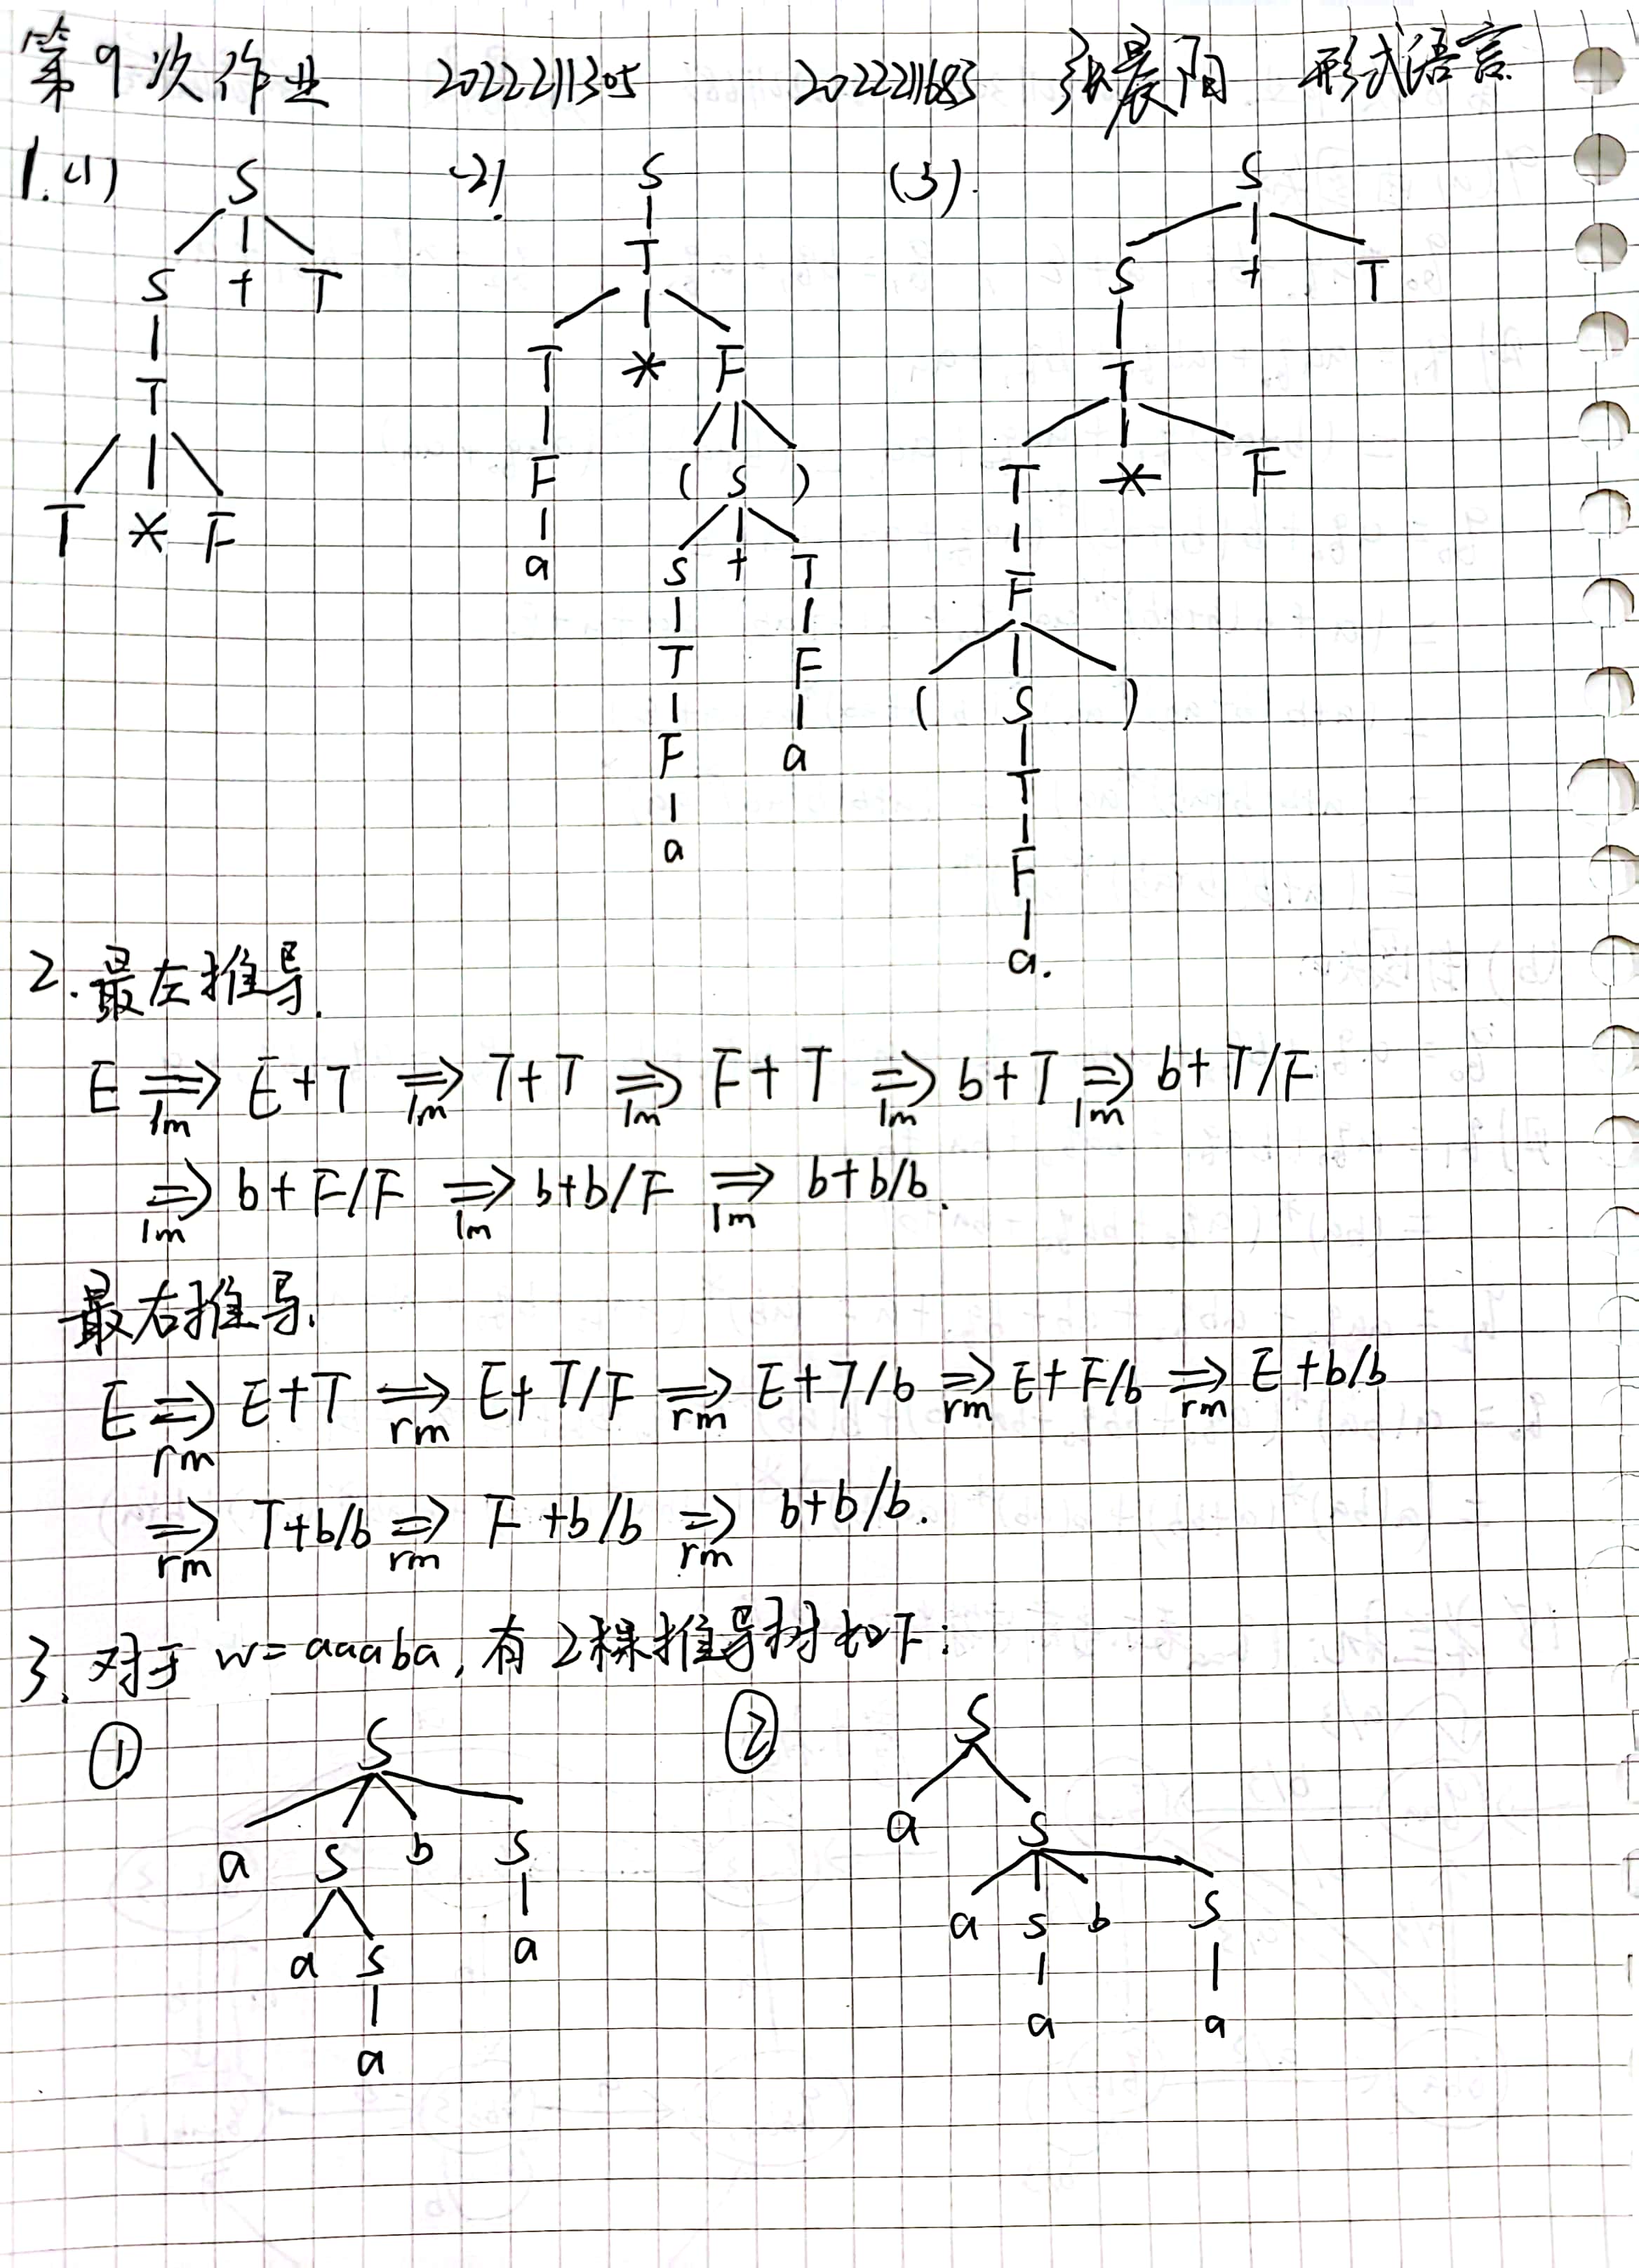 第9次作业 2022211305 2022211683 张晨阳 形式语言
1. (1) S (2). S (3). S
S + T
T
T * F
T
T * F
F ( S )
a S + T
T F
F a
a
S + T
T
T * F
F
( S )
T
F
a.
2. 最左推导.
E ⇒lm E+T ⇒lm T+T ⇒lm F+T ⇒lm b+T ⇒lm b+T/F
⇒lm b+F/F ⇒lm b+b/F ⇒lm b+b/b.
最右推导.
E ⇒rm E+T ⇒rm E+T/F ⇒rm E+T/b ⇒rm E+F/b ⇒rm E+b/b
⇒rm T+b/b ⇒rm F+b/b ⇒rm b+b/b.
3. 对于 w=aaaba, 有2棵推导树如下:
① S
a S b S
a S a
a
② S
a S
a S b S
a a